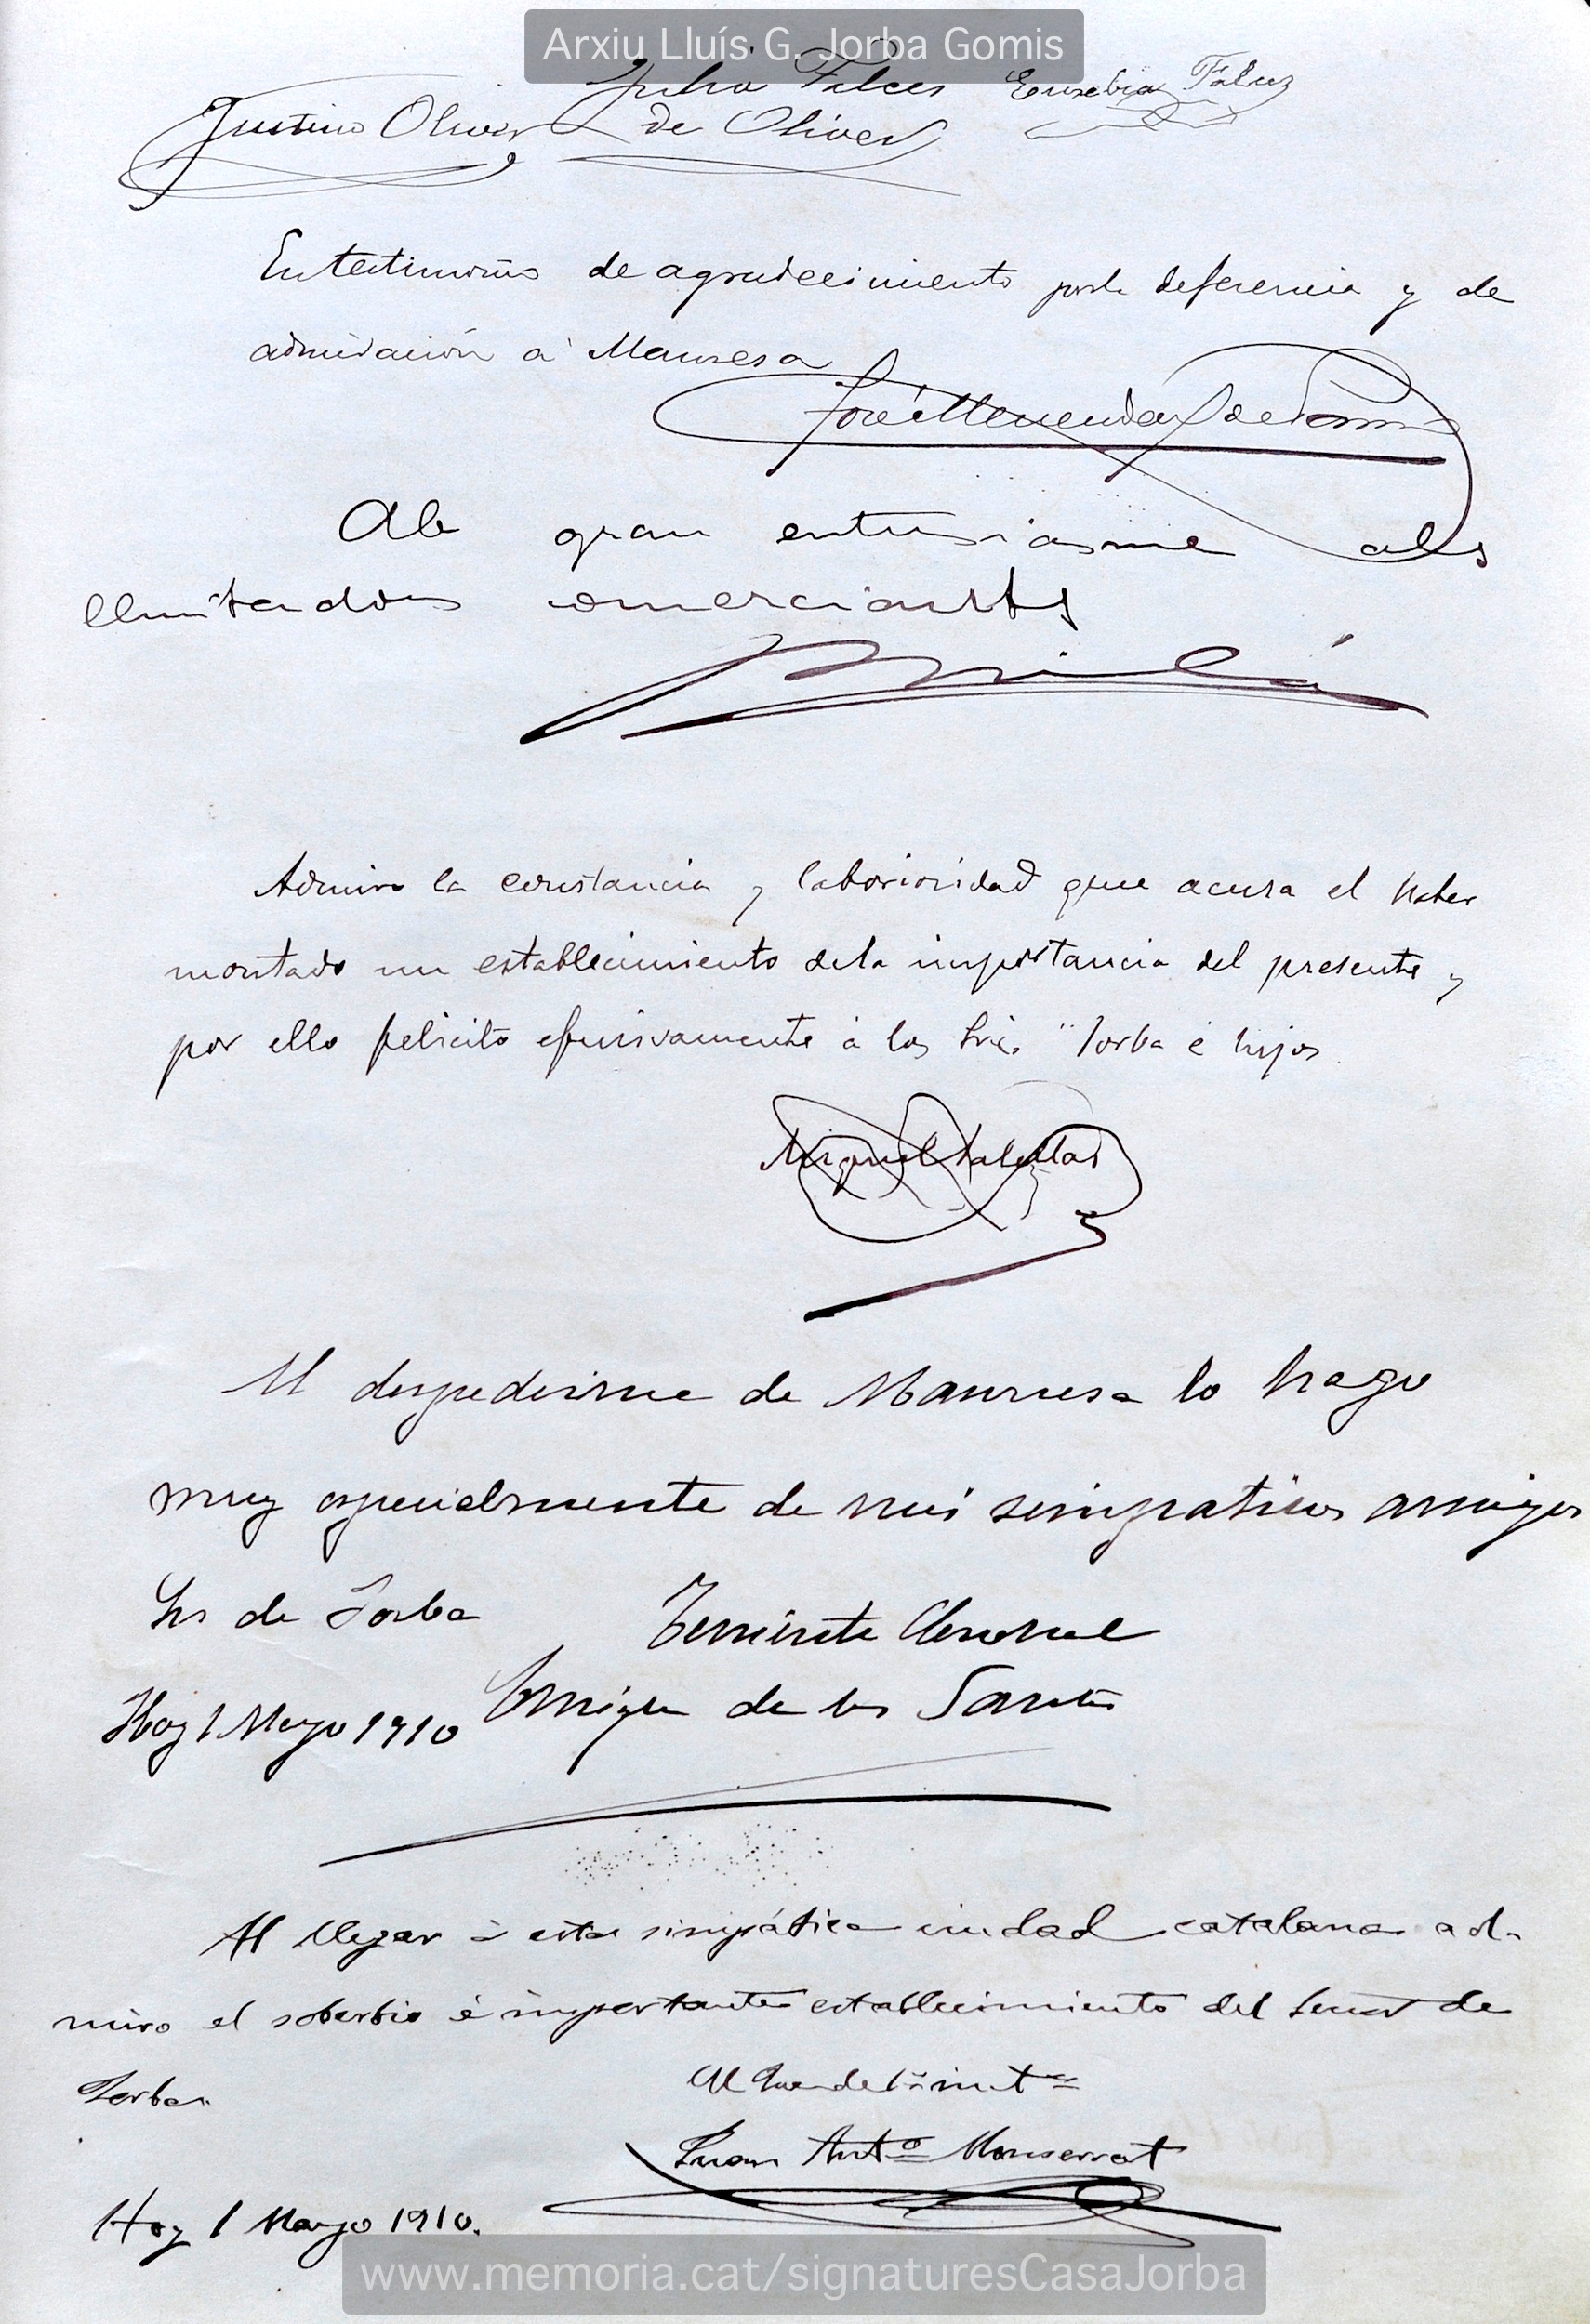 Arxiu Lluís G. Jorba Gomis
Julia Falces Eusebia Falces
Justino Oliver de Oliver
En testimonio de agradecimiento por la deferencia y de
admiración á Manresa
José Menendez
Ab gran entusiasme als
lluitadors comerciants
Milá
Admiro la constancia y laboriosidad que acusa el haber
montado un establecimiento de la importancia del presente y
por ello felicito efusivamente á los Sres. "Jorba é hijos
Miguel
Al despedirme de Manresa lo hago
muy especialmente de mis simpaticos amigos
Srs de Jorba Teniente General
Hoy 1 Mayo 1910 Enrique de los Santos
Al llegar á esta simpática ciudad catalana ad-
miro el soberbio é importante establecimiento del Señor de
Jorba.
El Juez de 1ª inst.ª
Juan Antº Monserrat
Hoy 1 Mayo 1910.
www.memoria.cat/signaturesCasaJorba